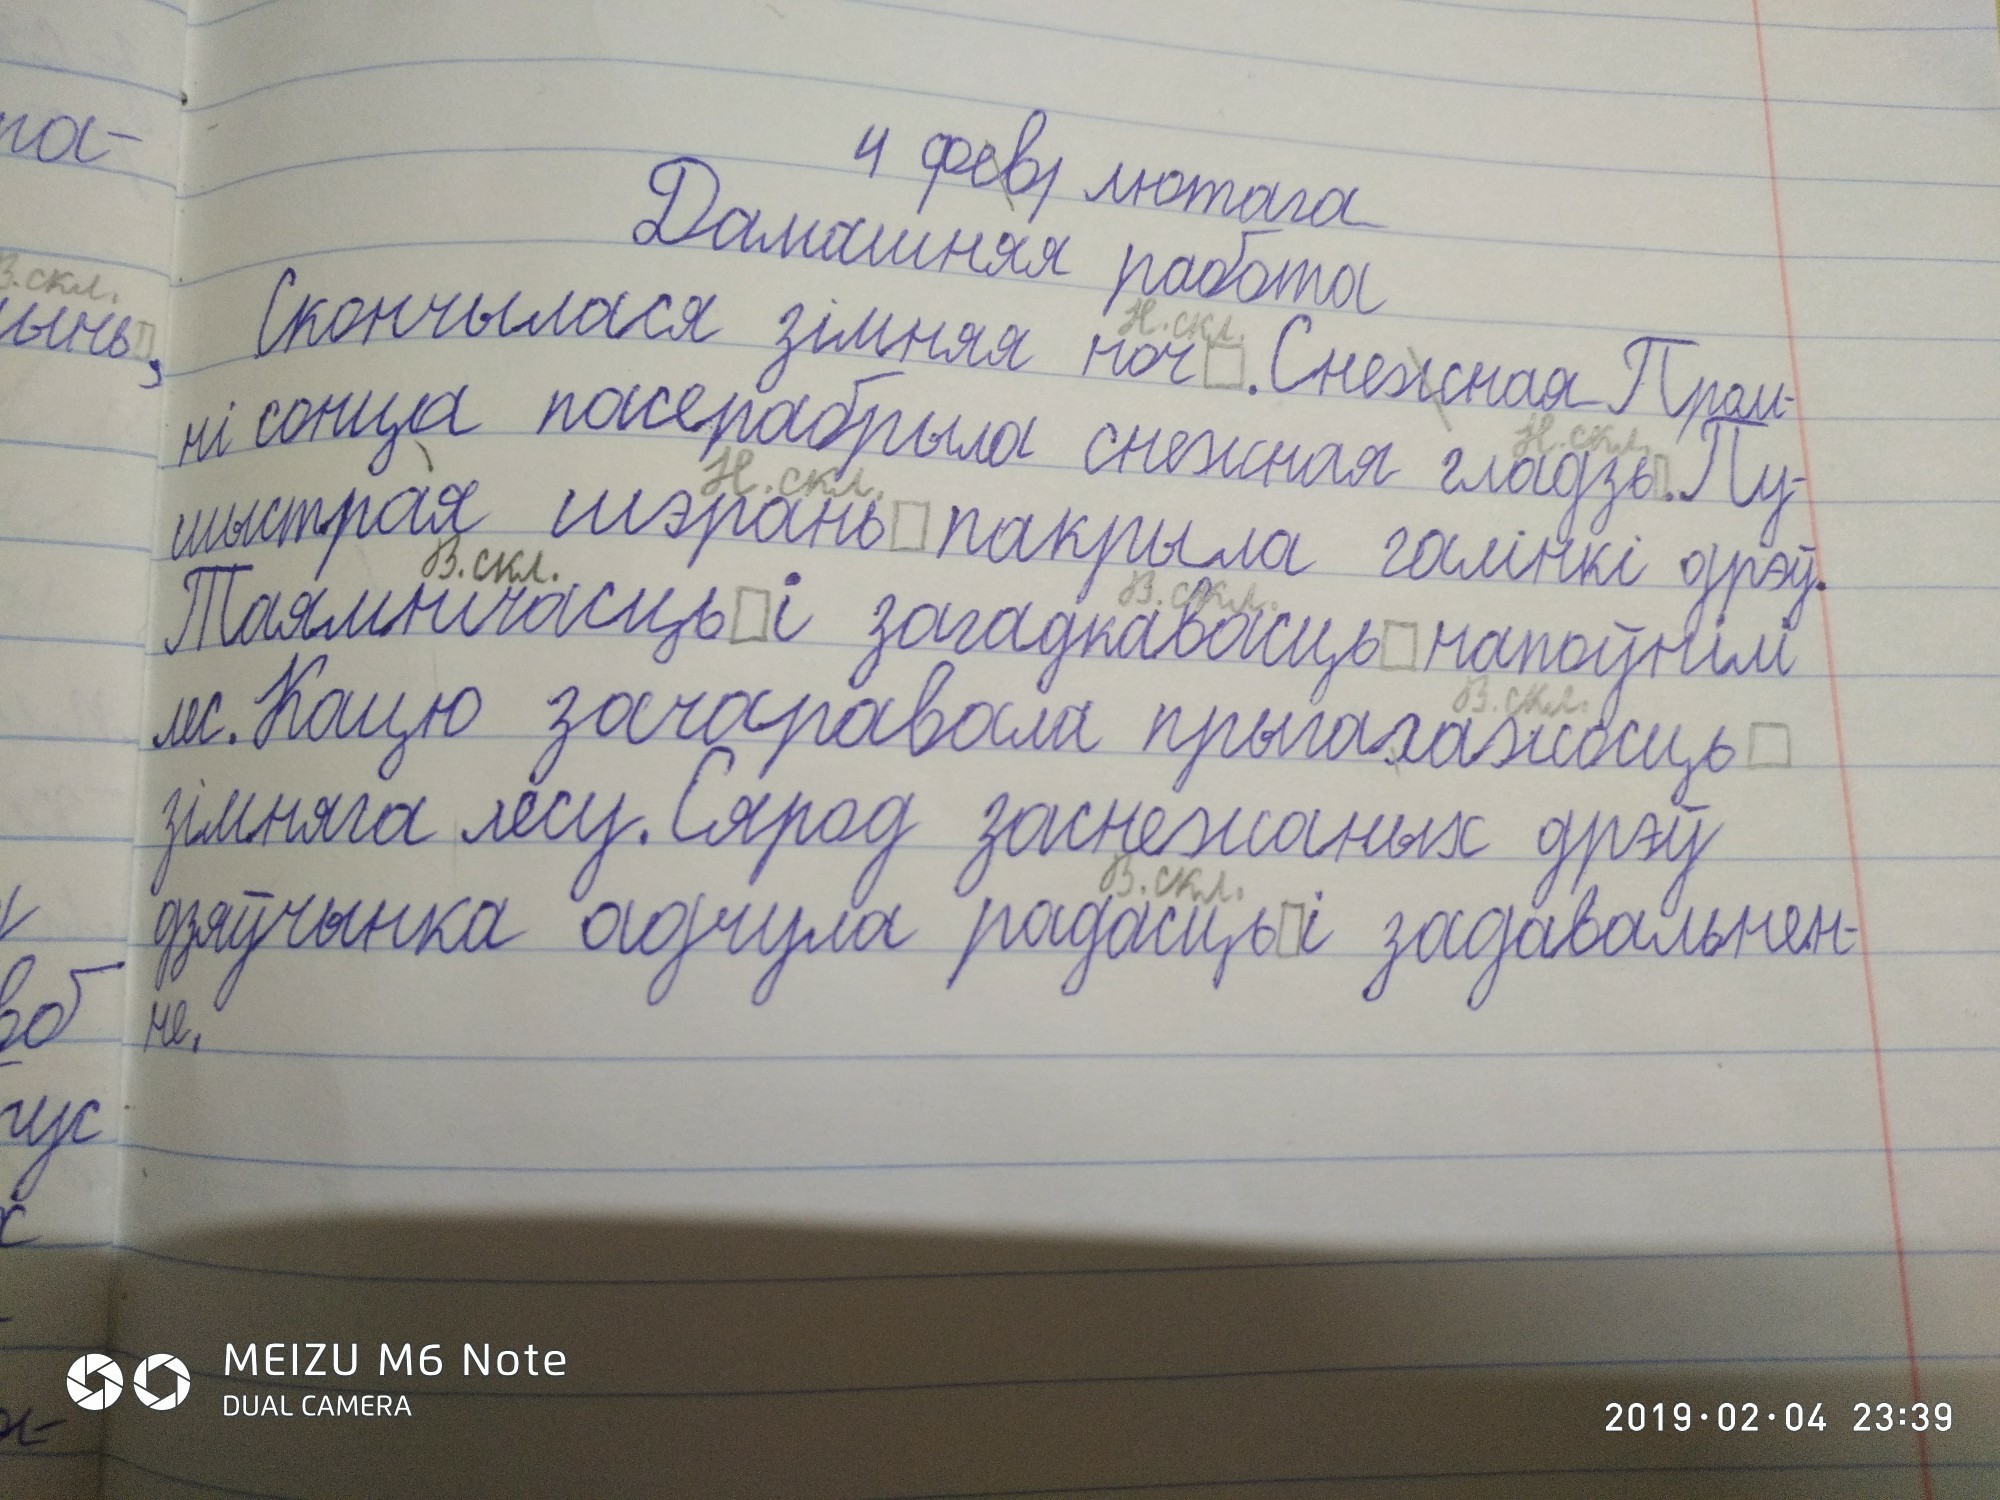 па-
4 февр лютага
Дамашняя работа
В.скл.
Н.скл.
Скончылася зімняя ноч. Снежная Прам-
ынь,
Н.скл.
ні сонца пасерабрыла снежная гладзь. Пу-
Н.скл.
шыстрая шэрань пакрыла галінкі дрэў.
В.скл. В.скл.
Таямнічасць і загадкавасць напоўнілі
В.скл.
лес. Кацю зачаравала прыгахажосць
зімняга лесу. Сярод заснежаных дрэў
В.скл.
дзяўчынка адчула радасць і задавальнен-
не.
воб
гус
MEIZU M6 Note
DUAL CAMERA
2019·02·04 23:39